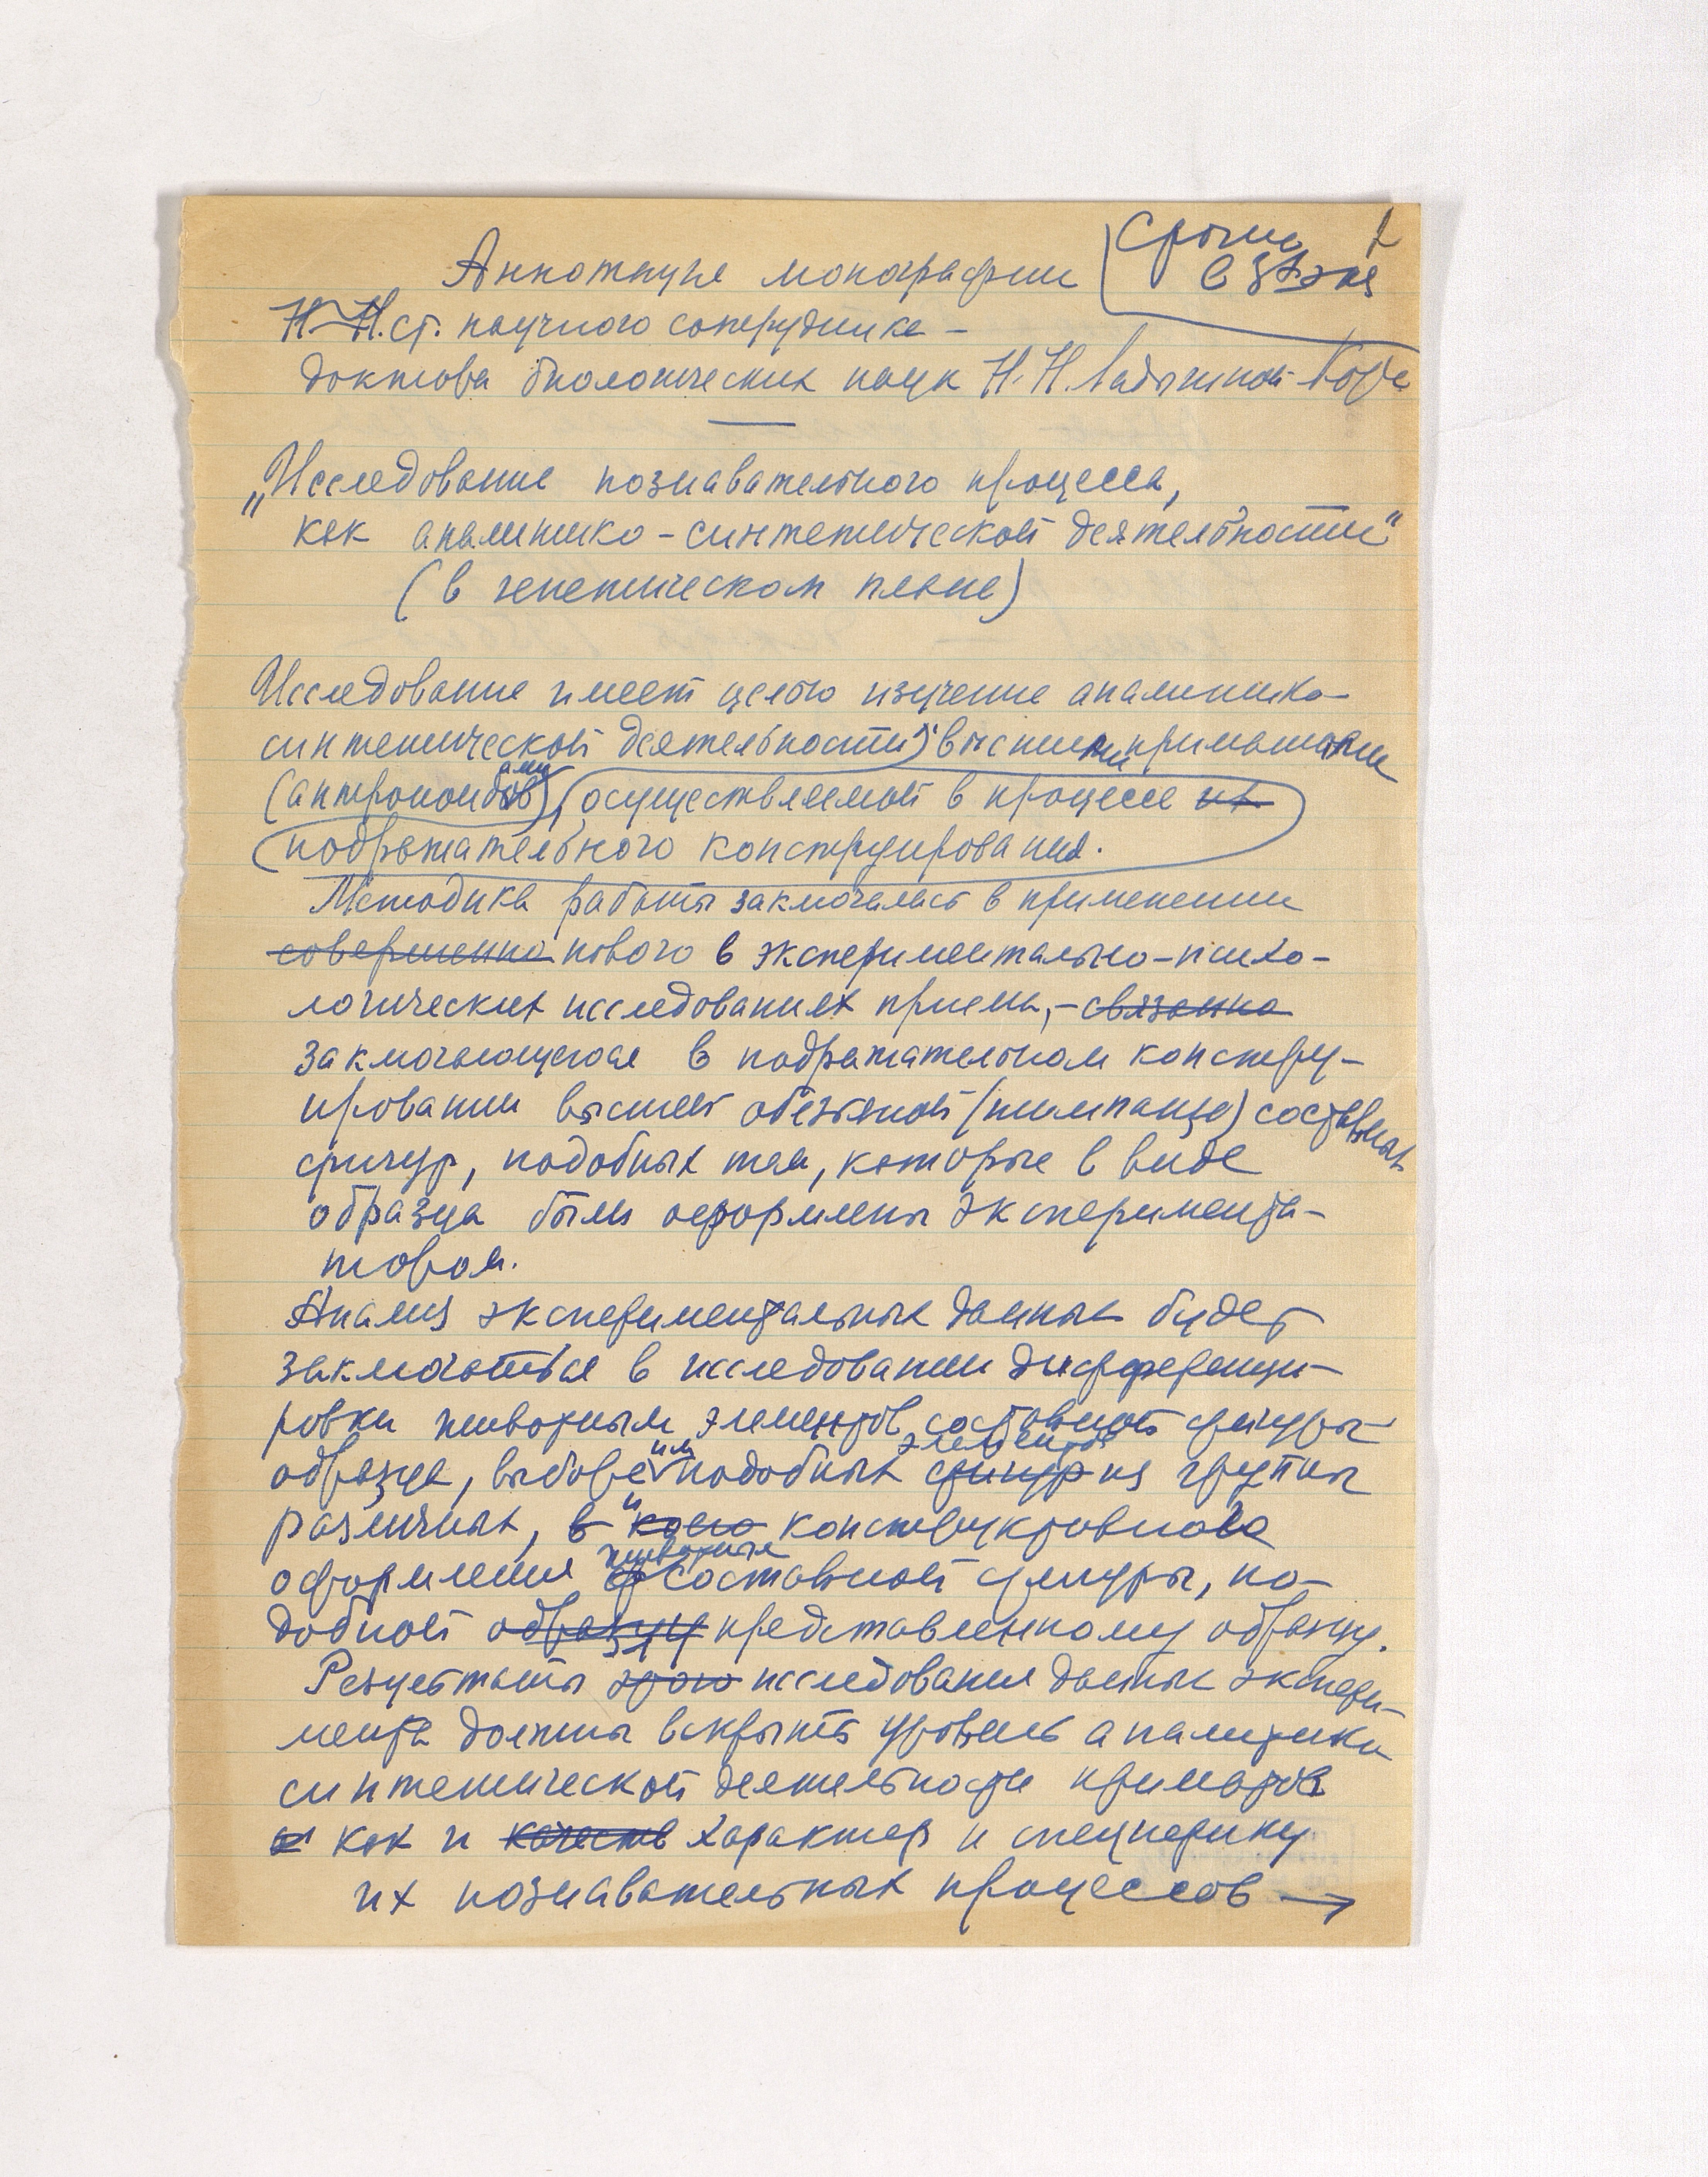 Срочно
в 3х экз
1
Аннотация монографии
Н.Н. ст. научного сотрудника –
доктора биологических наук Н. Н. Ладыгиной-Котс
„Исследование познавательного процесса,
как аналитико-синтетической деятельности"
(в генетическом плане)
Исследование имеет целью изучение аналитико-
синтетической деятельности высшими приматами
(антропоидами), осуществляемой в процессе их
подражательного конструирования.
Методика работы заключалась в применении
совершенно нового в экспериментально-психо-
логических исследованиях приема, – связанно
заключающегося в подражательном констру-
ировании высшей обезьяной (шимпанзе) составных
фигур, подобных тем, которые в виде
образца были оформлены экспримента-
тором.
Анализ экспериментальных данных будет
заключаться в исследовании дифференци-
ровки животным элементов составной фигуры
образца, выборе им подобных фигур элементов из группы
различных, в и конструктивного
оформления животным составной фигуры, по-
добной образцу представленному образцу.
Результаты этого исследования данных экспери-
мента должны вскрыть уровень аналитико
синтетической деятельности приматов
и как и качеств характер и специфику
их познавательных процессов →